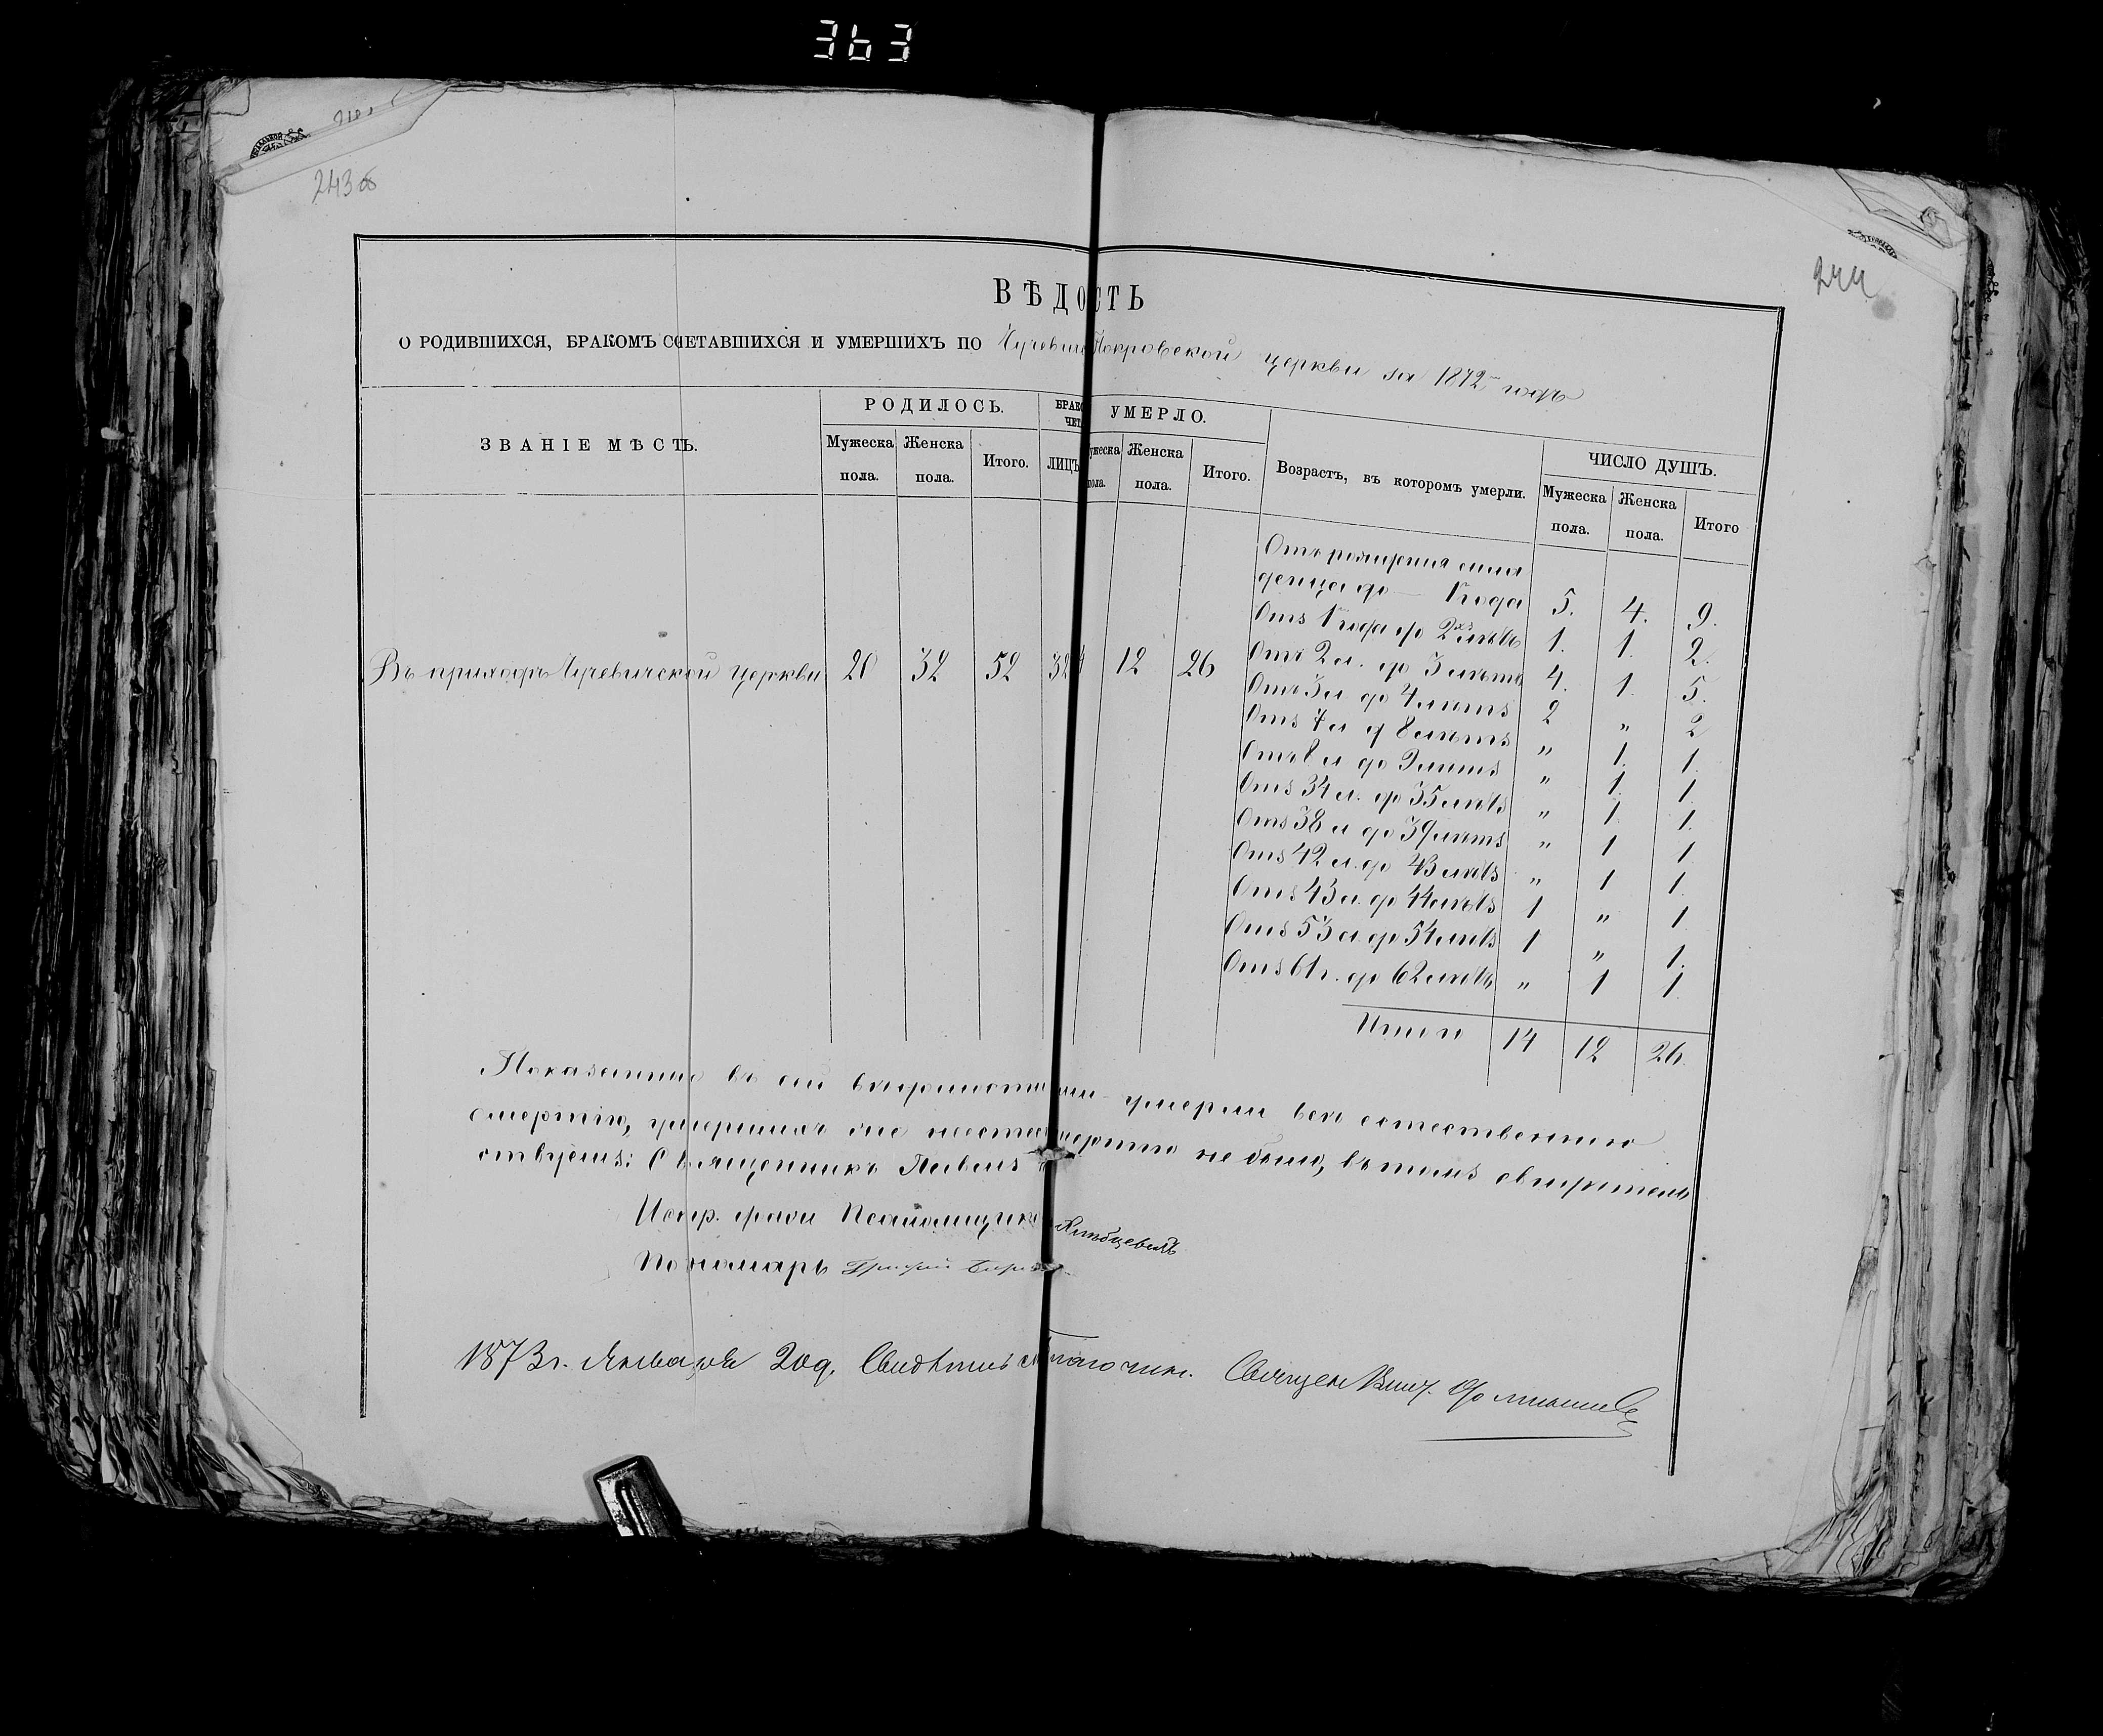 363
243 об
244
ВѢДОСТЬ
О РОДИВШИХСЯ, БРАКОМЪ СОЧЕТАВШИХСЯ И УМЕРШИХЪ ПО Покровской церкви за 1872 годъ
ЗВАНІЕ МѢСТЪ.
РОДИЛОСЬ.
Мужеска пола.
Женска пола.
Итого.
БРАКО
ЧЕТ
ЛИЦЪ
УМЕРЛО.
ужеска пола.
Женска пола.
Итого.
Возрастъ, въ которомъ умерли.
ЧИСЛО ДУШЪ.
Мужеска пола.
Женска пола.
Итого
Въ приходѣ церкви 20 32 52 32 4 12 26
Отъ рожденія мла
денца до — 1 года 5. 4. 9.
Отъ 1 года до 2хъ лѣтъ 1. 1. 2.
Отъ 2 л. до 3 лѣтъ 4. 1. 5.
Отъ 3 л до 4 лѣтъ 2 „ 2
Отъ 7 л д 8 лѣтъ „ 1. 1.
Отъ 8 л до 9 лѣтъ „ 1. 1.
Отъ 34 л. до 35 лѣтъ „ 1. 1.
Отъ 38 л до 39 лѣтъ „ 1 1
Отъ 42 л. до 43 лѣтъ „ 1 1.
Отъ 43 л. до 44 лѣтъ 1 „ 1.
Отъ 53 л. до 54 лѣтъ 1 „ 1.
Отъ 61 г. до 62 лѣтъ „ 1 1.
Итого 14 12 26.
Показанные въ сей вѣдомости умерли всѣ естественною
смертію, умершихъ же не было, въ томъ свидѣтель
ствуемъ: Священникъ Павелъ
Испр. долж Псаломщика
Пономарь
1873 г. Января 20 д. Благочин. Священ